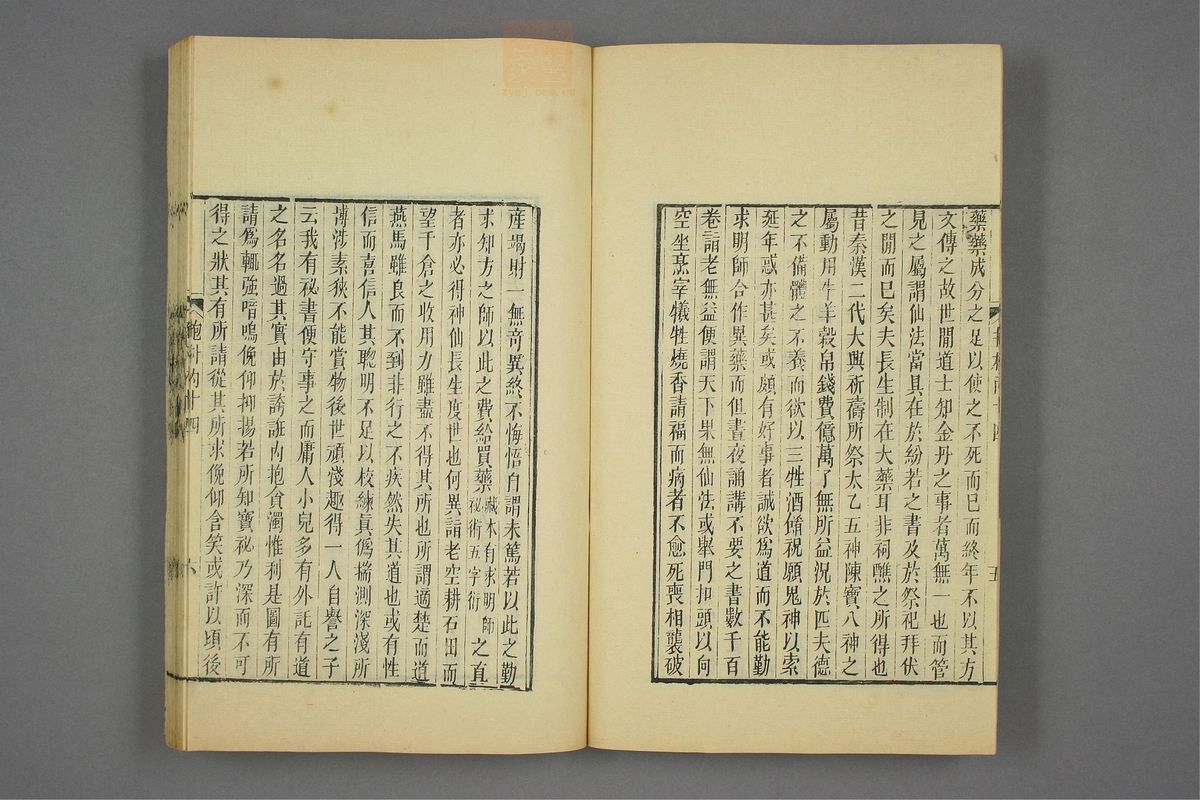 藥藥成分之足以使之不死而巳而終年不以其方
文傳之故世閒道士知金丹之事者萬無一也而管
見之屬謂仙法當具在於紛若之書及於祭祀拜伏
之閒而巳矣夫長生制在大藥耳非祠醮之所得也
昔秦漢二代大興祈禱所祭太乙五神陳寶八神之
屬動用牛羊穀帛錢費億萬了無所益況於匹夫德
之不備體之不養而欲以三牲酒餚祝願鬼神以索
延年惑亦甚矣或頗有好事者誠欲爲道而不能勤
求明師合作異藥而但晝夜誦講不要之書數千百
卷詣老無益便謂天下果無仙法或舉門扣頭以向
空坐烹宰犧牲燒香請福而病者不愈死喪相襲破
五
産竭財一無奇異終不悔悟自謂未篤若以此之勤
求知方之師以此之費給買藥藏本有求明師祕術五字衍之直
者亦必得神仙長生度世也何異詣老空耕石田而
望千倉之收用力雖盡不得其所也所謂適楚而道
燕馬雖良而不到非行之不疾然失其道也或有性
信而喜信人其聰明不足以校練眞僞揣測深淺所
博涉素狹不能賞物後世頑淺趣得一人自譽之子
云我有祕書便守事之而庸人小兒多有外託有道
之名名過其實由於誇誑内抱貪濁惟利是圖有所
請爲輒強喑嗚俛仰抑揚若所知寶祕乃深而不可
得之狀其有所請從其所求俛仰含笑或許以頃後
抱朴内十四
六